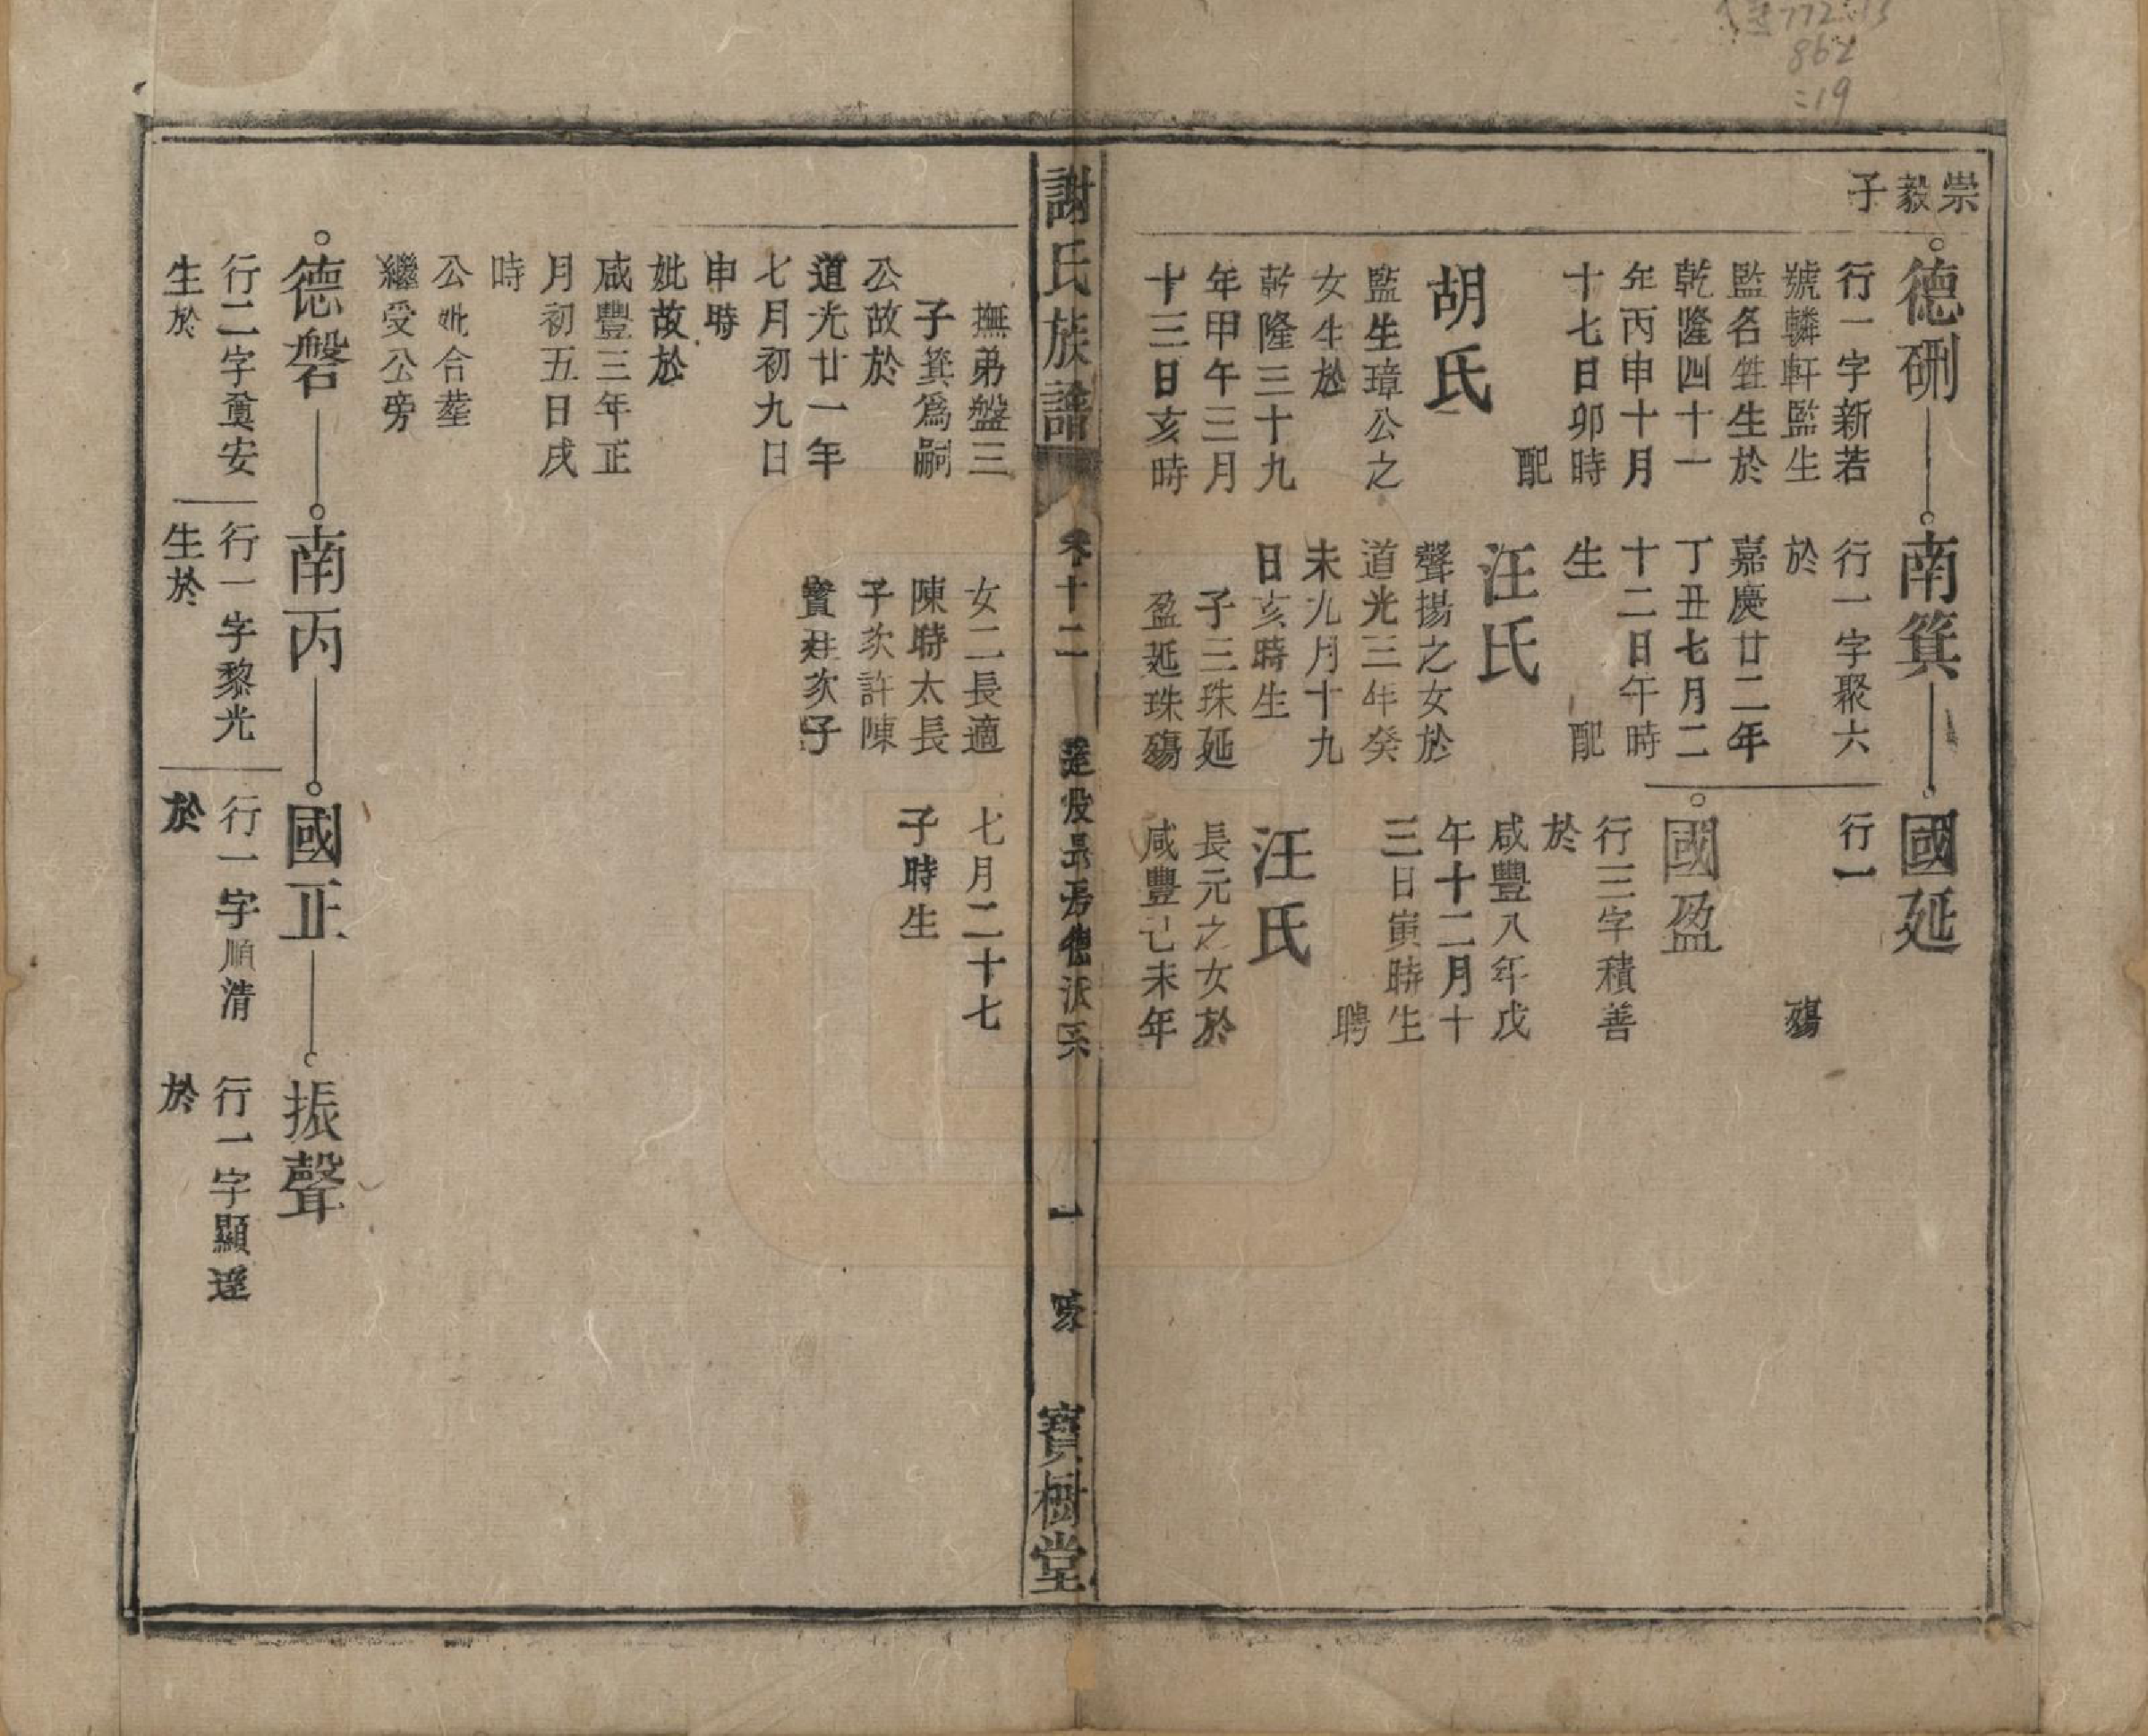 崇毅子
德硎
行一字新若
號轔軒監生
監名甡生於
乾隆四十一
年丙申十月
十七日卯時
配
胡氏
監生璋公之
女生於
乾隆三十九
年甲午三月
十三日亥時
南箕
行一字聚六
於
嘉慶廿二年
丁丑七月二
十二日午時
生
配
汪氏
聲揚之女於
道光三年癸
未九月十九
日亥時生
子三珠延
盈延珠殤
國延
行一
殤
國盈
行三字積善
於
咸豐八年戊
午十二月十
三日寅時生
聘
汪氏
長元之女於
咸豐己未年
謝氏族譜
卷十二
德派系
一
寶樹堂
撫弟盤三
子箕爲嗣
公故於
道光廿一年
七月初九日
申時
妣故於
咸豐三年正
月初五日戌
時
公妣合塟
繼受公旁
女二長適
陳時太長
子次許陳
次子
七月二十七
子時生
德磐
行二字奠安
生於
南丙
行一字黎光
生於
國正
行一字順清
於
振聲
行一字顯達
於
862
=19